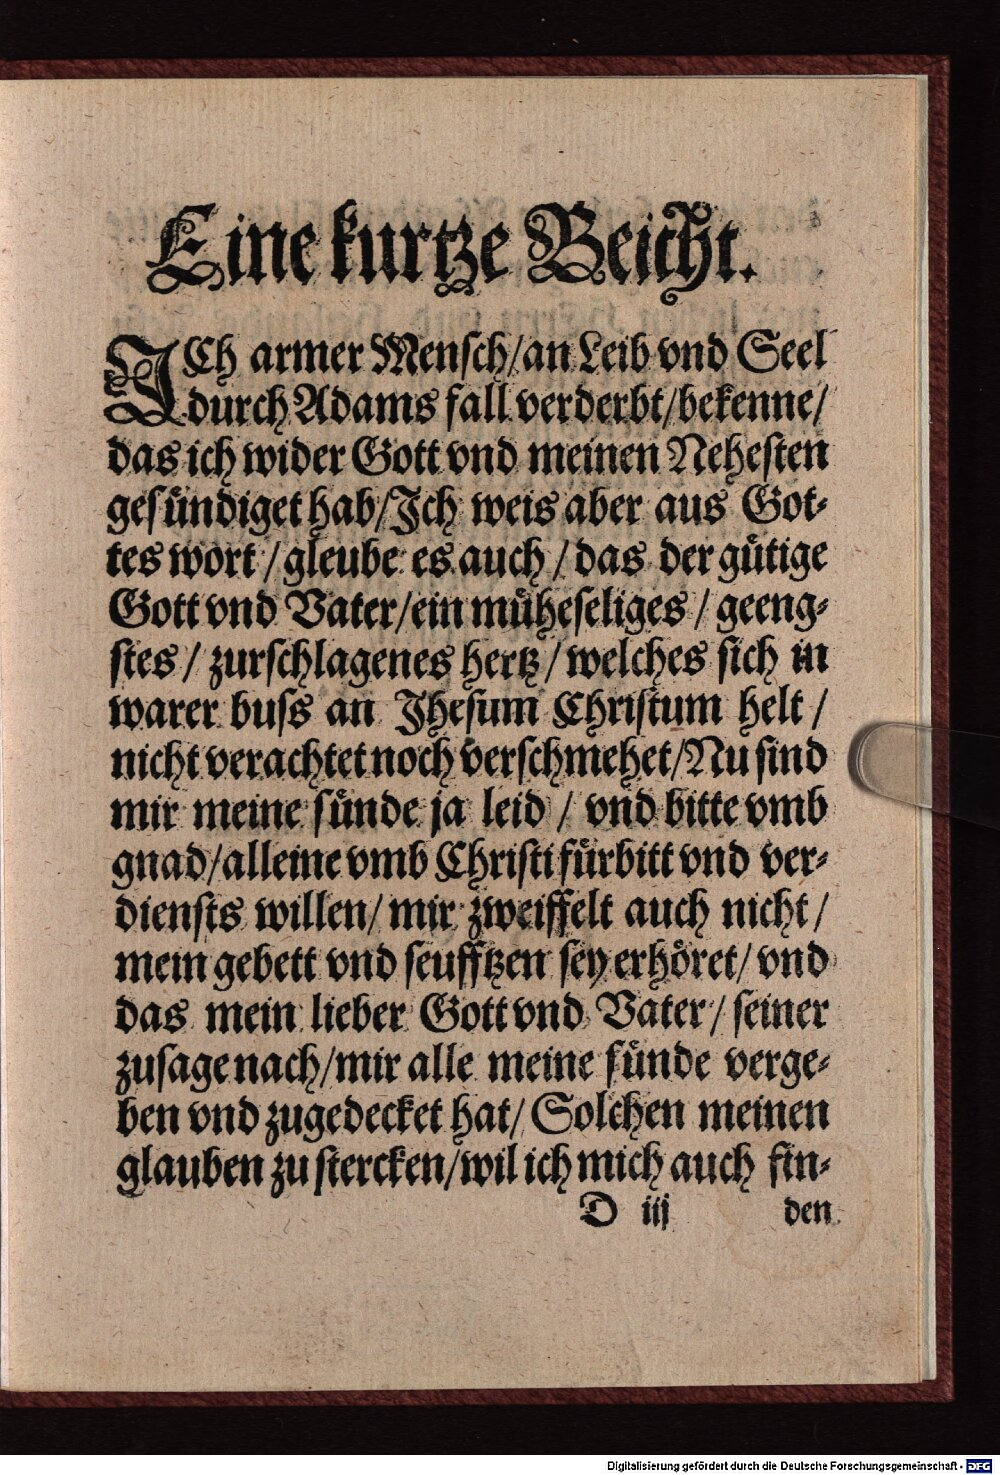 Eine kurtze Beicht.
ICh armer Mensch/an Leib vnd Seel
durch Adams fall verderbt/bekenne/
das ich wider Gott vnd meinen Nehesten
gesündiget hab/Ich weis aber aus Got-
tes wort/gleube es auch/das der gütige
Gott vnd Vater/ein müheseliges/geeng-
stes/zurschlagenes hertz/welches sich in
warer buss an Jhesum Christum helt/
nicht verachtet noch verschmehet/Nu sind
mir meine sünde ja leid/vnd bitte vmb
gnad/alleine vmb Christi fürbitt vnd ver-
diensts willen/mir zweiffelt auch nicht/
mein gebett vnd seufftzen sey erhöret/vnd
das mein lieber Gott vnd Vater/seiner
zusage nach/mir alle meine sünde verge-
ben vnd zugedecket hat/Solchen meinen
glauben zu stercken/wil ich mich auch fin-
D iij den
Digitalisierung gefördert durch die Deutsche Forschungsgemeinschaft - DFG